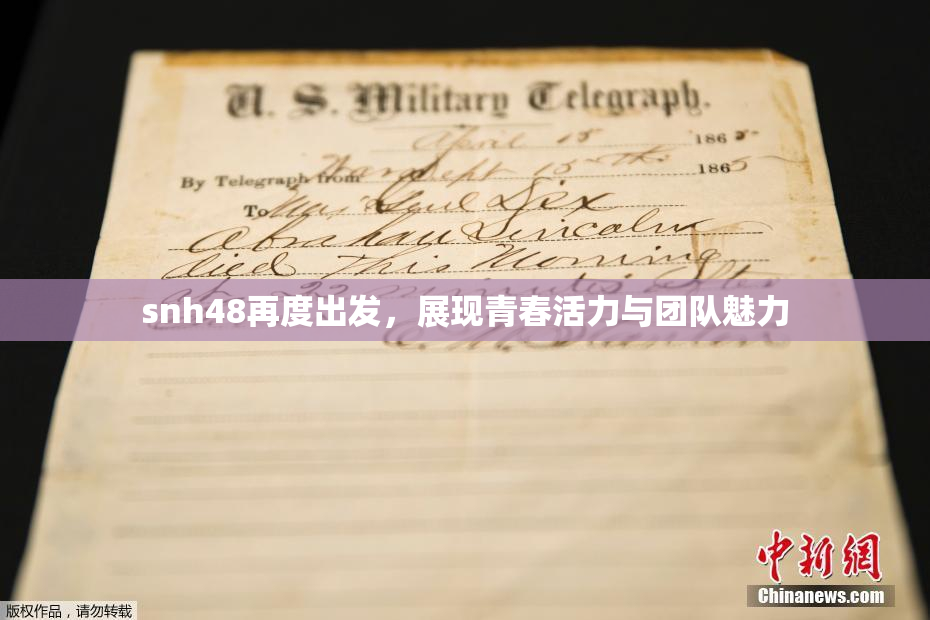 U. S. Military Telegraph.
April 15 1865
By Telegraph from War Dept 15th 1865
To Maj Genl Dix
Abraham Lincoln
died This Morning
at 22 minutes after
snh48再度出发，展现青春活力与团队魅力
E. M. Stanton
中新網
Chinanews.com
版权作品，请勿转载